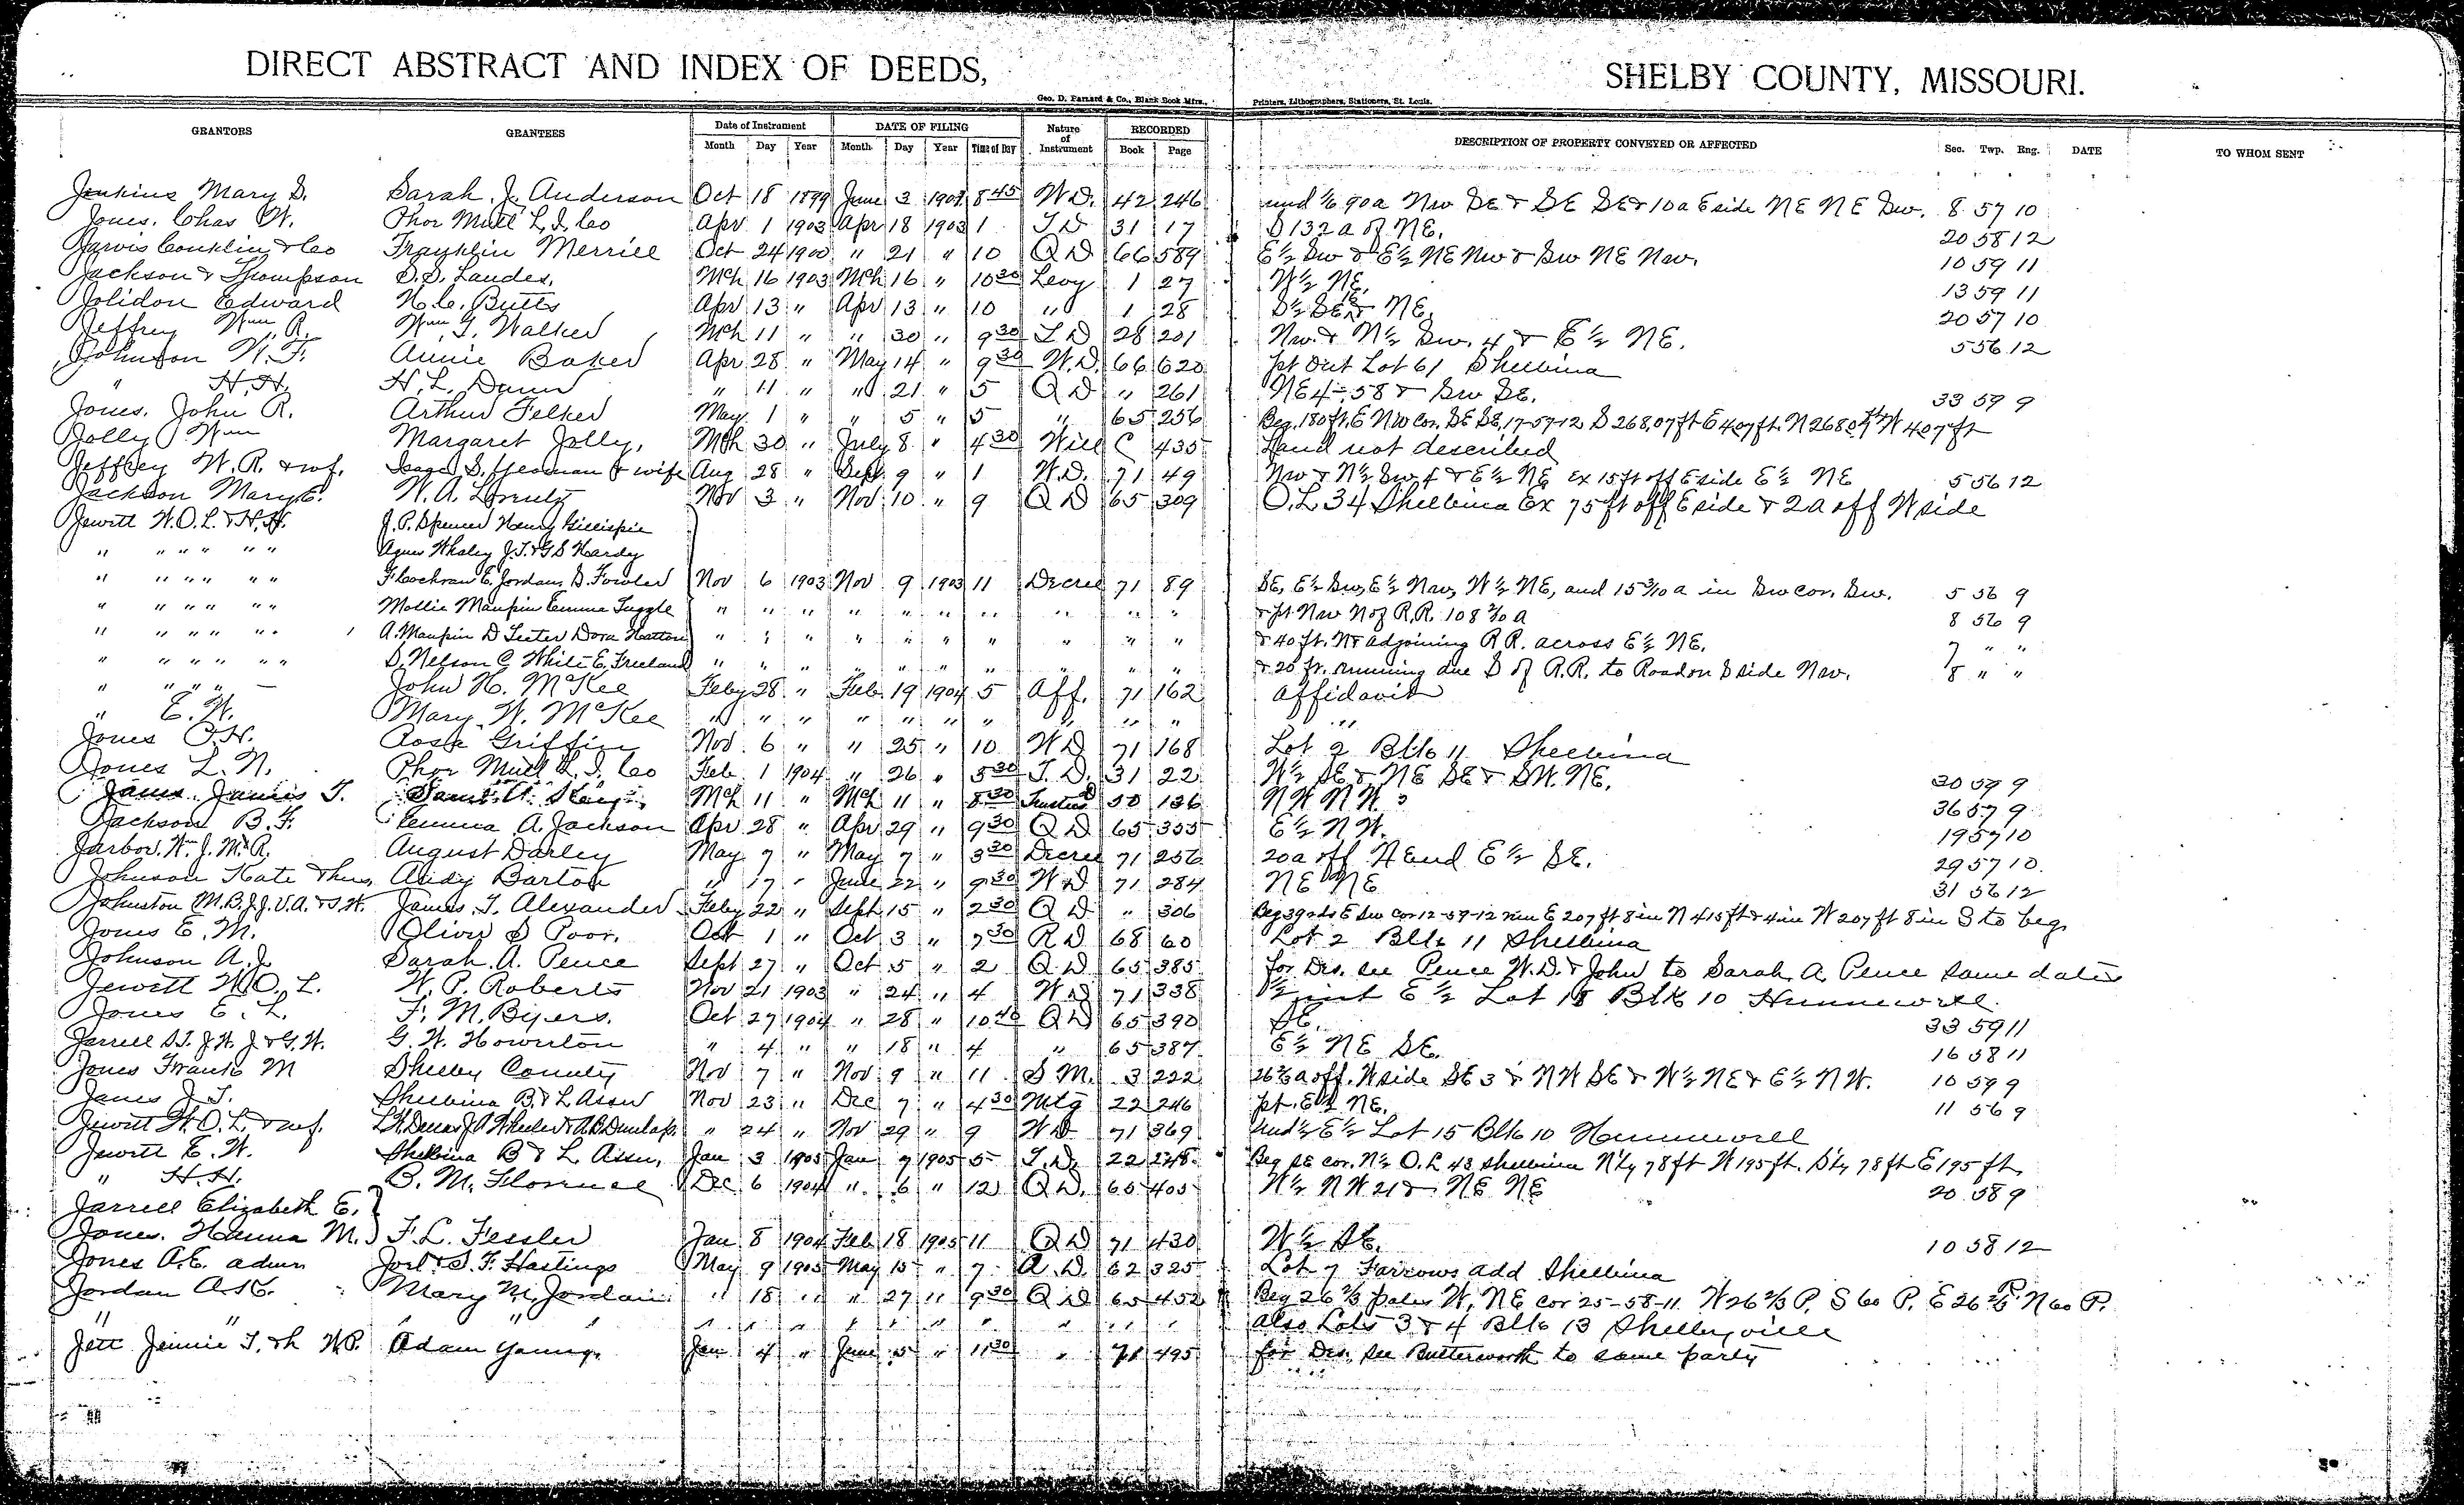 DIRECT ABSTRACT AND INDEX OF DEEDS, SHELBY COUNTY, MISSOURI.
Geo. D. Barnard & Co., Blank Book Mfrs., Printers, Lithographers, Stationers, St. Louis.
GRANTORS GRANTEES Date of Instrument DATE OF FILING Nature of Instrument RECORDED DESCRIPTION OF PROPERTY CONVEYED OR AFFECTED Sec. Twp. Rng. DATE TO WHOM SENT
Month Day Year Month Day Year Time of Day Book Page
Jenkins Mary S. Sarah J. Anderson Oct 18 1899 June 3 1901 8 45 W.D. 42 246 und 1/6 90a Nw SE & SE SE & 10a E side NE NE Sw. 8 57 10
Jones. Chas W. Phor Mutl L. I. Co Apr 1 1903 Apr 18 1903 1 T D 31 17 S 132 a of NE. 20 58 12
Jarvis Conklin & Co Franklin Merrill Oct 24 1900 " 21 " 10 Q D 66 589 E½ Sw & E½ NE Nw & Sw NE Nw. 10 59 11
Jackson & Thompson S.S. Landes. Mch 16 1903 Mch 16 " 10 30 Levy 1 27 W½ NE. 13 59 11
Jolidon Edward N.C. Butts Apr 13 " Apr 13 " 10 " 1 28 S½ SE & NE. 20 57 10
Jeffrey Wm. R. Wm. T. Walker Mch 11 " " 30 " 9 30 T D 28 201 Nw. & N½ Sw. 4 & E½ NE. 5 56 12
Johnson W. F. Annie Baker Apr 28 " May 14 " 9 30 W.D. 66 620 pt Out Lot 61 Shelbina
" H.H. H. L. Dunn " 11 " " 21 " 5 Q D " 261 NE 4-58 & Sw SE. 33 59 9
Jones. John R. Arthur Felker May 1 " " 5 " 5 " 65 256 Beg. 180 ft. E NW cor. SE SE, 17-57-12 S 268.07 ft E 407 ft. N 268.07 ft W 407 ft
Jolly Wm Margaret Jolly, Mch 30 " July 8 " 4 30 Will C 435 Land not described
Jeffrey W. R. & wf. Isaac S. Yeoman & wife Aug 28 " Sept 9 " 1 W.D. 71 49 Nw & N½ Sw 4 & E½ NE ex 15 ft off E side E½ NE 5 56 12
Jackson Mary E. W. A. Lorentz Nov 3 " Nov 10 " 9 Q D 65 309 O.L 34 Shelbina Ex 75 ft off E side & 2 a off W side
Jewett W.O.L. & H.H. J. P. Spencer Henry Gillispie
" " " " " " Agnes Whaley J.T. & G S Hardy
" " " " " " F Cochran E. Jordan, S. Fowler Nov 6 1903 Nov 9 1903 11 Decree 71 89 SE, E½ Sw, E½ Nw, W½ NE, and 15 3/10 a in Sw cor. Sw. 5 56 9
" " " " " " Mollie Maupin Emma Tuggle " " " " " " " " " " & pt Nw N of R.R. 108 2/10 a 8 56 9
" " " " " " A. Maupin D Teeter Dora Hatton " " " " " " " " " " & 40 ft. N & adjoining R R. across E½ NE. 7 " "
" " " " " " S. Nelson C White E. Freeland " " " " " " " " " " & 20 ft. running due S of R.R. to Road on S side Nw. 8 " "
" " " " — John H. McKee Feby 28 " Feb 19 1904 5 Aff. 71 162 affidavit
" E. W. Mary W. McKee " " " " " " " " " " "
Jones O.H. Rosa Griffin Nov. 6 " " 25 " 10 W D 71 168 Lot 2 Blk 11 Shelbina
Jones L. N. Phor Mutl L. I. Co Feb 1 1904 " 26 " 5 30 T. D. 31 22 W½ SE & NE SE & SW. NE. 30 59 9
James James T. Mch 11 " Mch 11 " 8 30 Trustees D 50 136 NW NW. 36 57 9
Jackson B. F. Emma A. Jackson Apr 28 " Apr 29 " 9 30 Q D 65 355 E½ NW. 19 57 10
Jarboe. W. J. M. R. August Darley May 7 " May 7 " 3 30 Decree 71 256 20 a off N end E½ SE. 29 57 10
Johnson Kate & hus, Andy Barton " 17 " June 22 " 9 30 W D 71 284 NE NE 31 56 12
Johnston M.B. J.J. V.A. & S.W. James. T. Alexander Feby 22 " Sept 15 " 2 30 Q D " 306 Beg 39 rds E Sw cor 12-59-12 run E 207 ft 8 in N 415 ft & 4 in W 207 ft 8 in S to beg.
Jones E. M. Oliver S Poor. Oct 1 " Oct 3 " 7 30 R D 68 60 Lot 2 Blk 11 Shelbina
Johnson A. J. Sarah. A. Pence Sept 27 " Oct 5 " 2 Q D 65 385 for Des. see Pence W. D. & John to Sarah A. Pence same date
Jewett W.O. L. W. P. Roberts Nov 21 1903 " 24 " 4 W D 71 338 ½ int E½ Lot 15 Blk 10 Hunnewell.
Jones E. L. F. M. Byers. Oct 27 1904 " 28 " 10 40 Q D 65 390 SE. 33 59 11
Jarrell S.T. J.W. J. & G.W. G. W. Howerton " 4 " " 18 " 4 " 65 387 E½ NE SE. 16 58 11
Jones Frank M Shelby County Nov 7 " Nov 9 " 11 S M. 3 222 26⅔ a off. W side SE 3 & NW SE & W½ NE & E½ NW. 10 59 9
Janes J. T. Shelbina B. & L Assn Nov 23 " Dec 7 " 4 30 Mtg 22 246 pt. E½ NE. 11 56 9
Jewett W.O.L. & wf. L.K. Deens J.A Wheeler & A.B. Dunlap " 24 " Nov 29 " 9 W D 71 369 Und ½ E½ Lot 15 Blk 10 Hunnewell
Jewett E. W. Shelbina B & L. Assn, Jan 3 1905 Jan 7 1905 5 T. D. 22 248 Beg SE cor. N½ O.L 43 Shelbina N'ly 78 ft W 195 ft. S'ly 78 ft E 195 ft
" H.H. B. M. Florence Dec 6 1904 " 6 " 12 Q D. 65 405 W½ NW 21 & NE NE 20 58 9
Jarrell Elizabeth E.
Jones. Hanna M. F. L. Fessler Jan 8 1904 Feb 18 1905 11 Q D 71 430 W½ SE. 10 58 12
Jones A.E. admr Joel & S. F. Hastings May 9 1905 May 15 " 7 A. D. 62 325 Lot 7 Farrows add Shelbina
Jordan A.K. Mary M. Jordan " 18 " " 27 " 9 30 Q D 65 452 Beg 26⅔ poles W. NE cor 25-58-11 W 26⅔ P. S 60 P. E 26⅔ P. N 60 P.
" " " " " " " " " " " " " " also Lots 3 & 4 Blk 13 Shelbyville
Jett Jennie T. & h W.P. Adam Young. Jan 4 " June 5 " 11 30 " 71 495 for Des. see Butterworth to same party